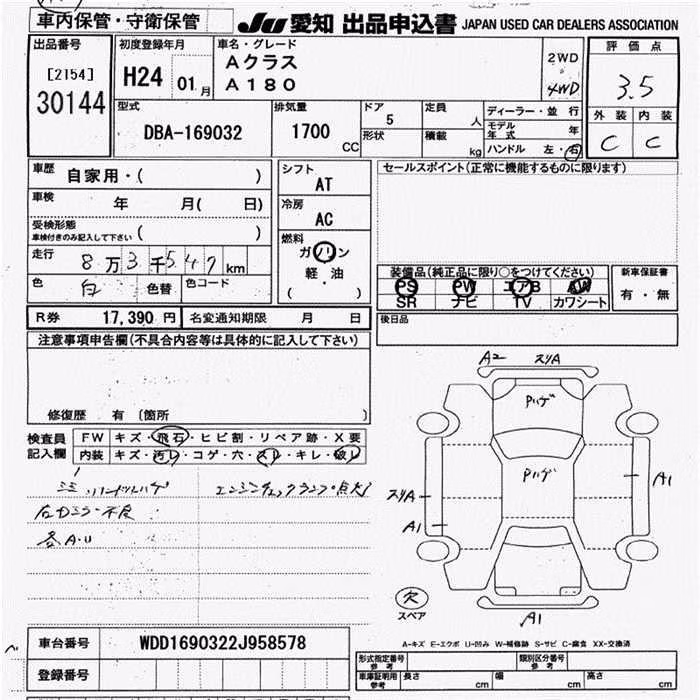 車内保管・守衛保管
JU 愛知 出品申込書 JAPAN USED CAR DEALERS ASSOCIATION
出品番号
[2154]
30144
初度登録年月
H24 01 月
車名・グレード
Aクラス
A180
2WD
4WD
評価点
3.5
外装 内装
C C
型式
DBA-169032
排気量
1700 CC
ドア
5
形状
定員
人
積載
kg
ディーラー・並行
モデル年式 年
ハンドル 左・右
車歴 自家用・( )
車検 年 月( 日)
受検形態
車検付きのみ記入して下さい ( )
走行 8万3千547km
色 白 色替 色コード
シフト
AT
冷房
AC
燃料
ガソリン
軽・油
( )
セールスポイント(正常に機能するものに限ります)
装備品(純正品に限り○をつけてください)
PS PW エアB AW
SR ナビ TV カワシート
新車保証書
有・無
R券 17,390 円 名変通知期限 月 日
後日品
注意事項申告欄(不具合内容等は具体的に記入して下さい)
修復歴 有 (箇所 )
検査員記入欄
FW キズ・飛石・ヒビ割・リペア跡・X要
内装 キズ・汚レ・コゲ・穴・スレ・キレ・破レ
エンジンチェックランプ点灯
右カミラー不良
各A・U
A2 スリA
Pハゲ
Pハゲ
スリA
A1
A1
A1
欠
スペア
A-キズ E-エクボ U-凹み W-補修跡 S-サビ C-腐食 XX-交換済
車台番号 WDD1690322J958578
登録番号
形式指定番号
参考
類別区分番号
参考
車庫証明用
参考
長さ cm 幅 cm 高さ cm